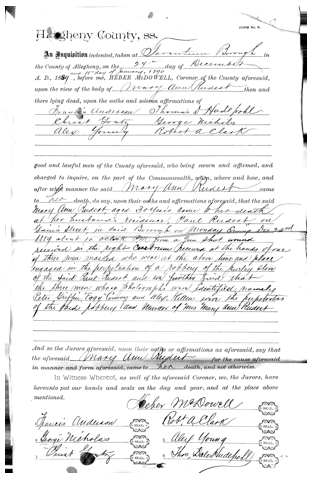 FORM No. 9.
Allegheny County, ss.
An Inquisition indented, taken at Boro in
the County of Allegheny, on the 24th day of December
and 11th day of January, 1890
A. D., 1889, before me, HEBER McDOWELL, Coroner of the County aforesaid,
upon the view of the body of Mary Ann Rudert then and
there lying dead, upon the oaths and affirmations of
Francis Anderson Thomas D
Christ George Nichols
Alex Young Robert A Clark
good and lawful men of the County aforesaid, who being sworn and affirmed, and
charged to inquire, on the part of the Commonwealth, when, where and how, and
after what manner the said Mary Ann Rudert came
to her death, do say, upon their oaths and affirmations aforesaid, that the said
Mary Ann Rudert, aged came to her death
at her husband's residence, Paul Rudert on
Street in said Borough on Monday Evening Dec 23rd
1889 about 10 oclock from a Gun shot wound
received in the right at the hands of one
of three men masked who were at the above time and place
engaged in the perpetration of a robbery of the store
of the said Paul Rudert and we further find that
the three men whose photographs were identified, namely
Peter Griffin, and Alex Killen were the perpetrators
of the said robbery and Murder of Mrs Mary Ann Rudert
And so the Jurors aforesaid, upon their oaths or affirmations as aforesaid, say that
the aforesaid Mary Ann Rudert for the cause aforesaid
in manner and form aforesaid, came to her death, and not otherwise.
In Witness Whereof, as well of the aforesaid Coroner, as, the Jurors, have
hereunto put our hands and seals on the day and year, and at the place above
mentioned.
Heber McDowell SEAL
Francis Anderson SEAL Robt A Clark SEAL
George Nicholas SEAL Alex Young SEAL
Christ SEAL Thos. SEAL